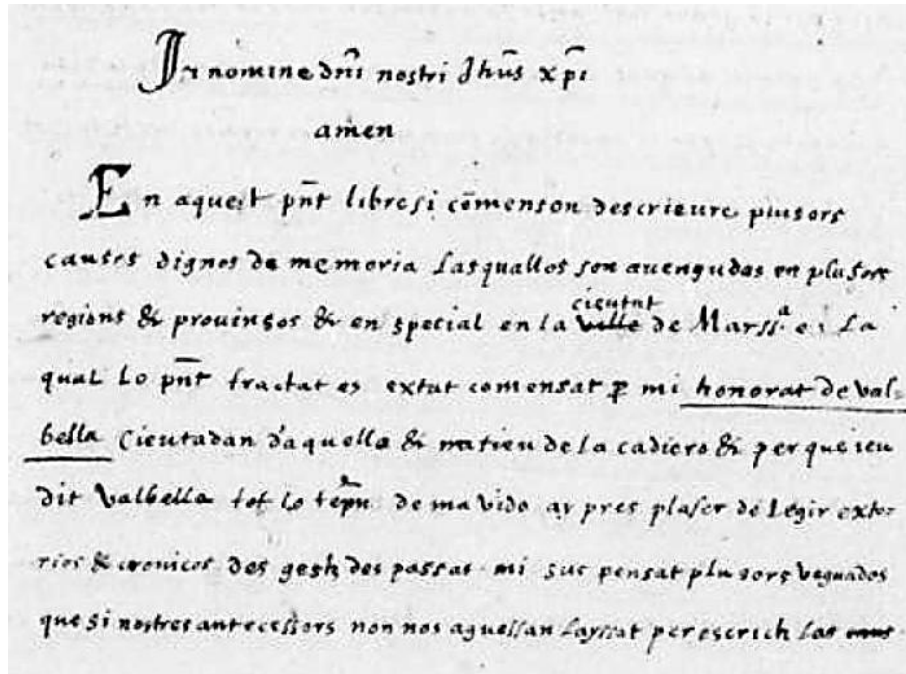 In nomine dñi nostri Jhũs xp̃i
amen
En aquest pñt libre si cõmenson descrieure plusors
causes dignos de memoria Lasquallos son auengudas en plusors
regions & prouinsos & en special en la cieutat ville de Marssᵃ e. La
qual Lo pñt tractat es extat comensat p̱ mi honorat de val=
bella Cieutadan d'aquella & natieu de la cadiero & per que ieu
dit Valbella tot lo de ma vido ay pres plaser de Legir exto=
rios & cronicos des gestz des passat mi sus pensat plusors veguados
que si nostres antecessors non nos aguessan Layssat per escrich Las caus